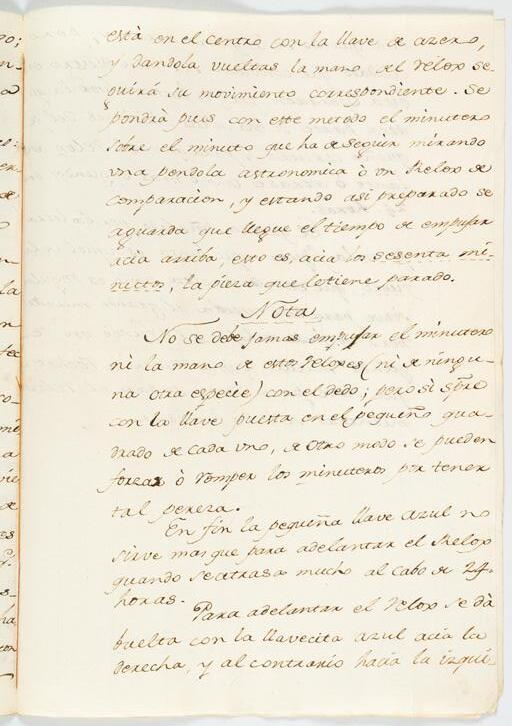 està en el centro con la llave de azero,
y dandola vueltas la mano del relox se-
guirá su movimiento correspondiente. Se
pondrà pues con este metodo el minutero
sobre el minuto que ha de seguir mirando
una pendola astronomica ò un Relox de
comparacion, y estando asi preparado se
aguarda que llegue el tiempo de empujar
acia arriba, esto es, acia los sesenta mi-
nutos, la pieza que le tiene parado.
Nota
No se debe jamas empujar el minutero
ni la mano de estos relòxes (ni de ningu-
na otra especie) con el dedo; pero sì spre
con la llave puesta en el pequeño qua-
drado de cada uno, de otro modo se pueden
forzar ò romper los minuteros por tener
tal pereza.
En fin la pequeña llave azul no
sirve mas que para adelantar el Relox
quando se atrasa mucho al cabo de 24.
horas.
Para adelantar el relox se dà
buelta con la llavecita azul acia la
derecha, y al contrario hacia la izqui-